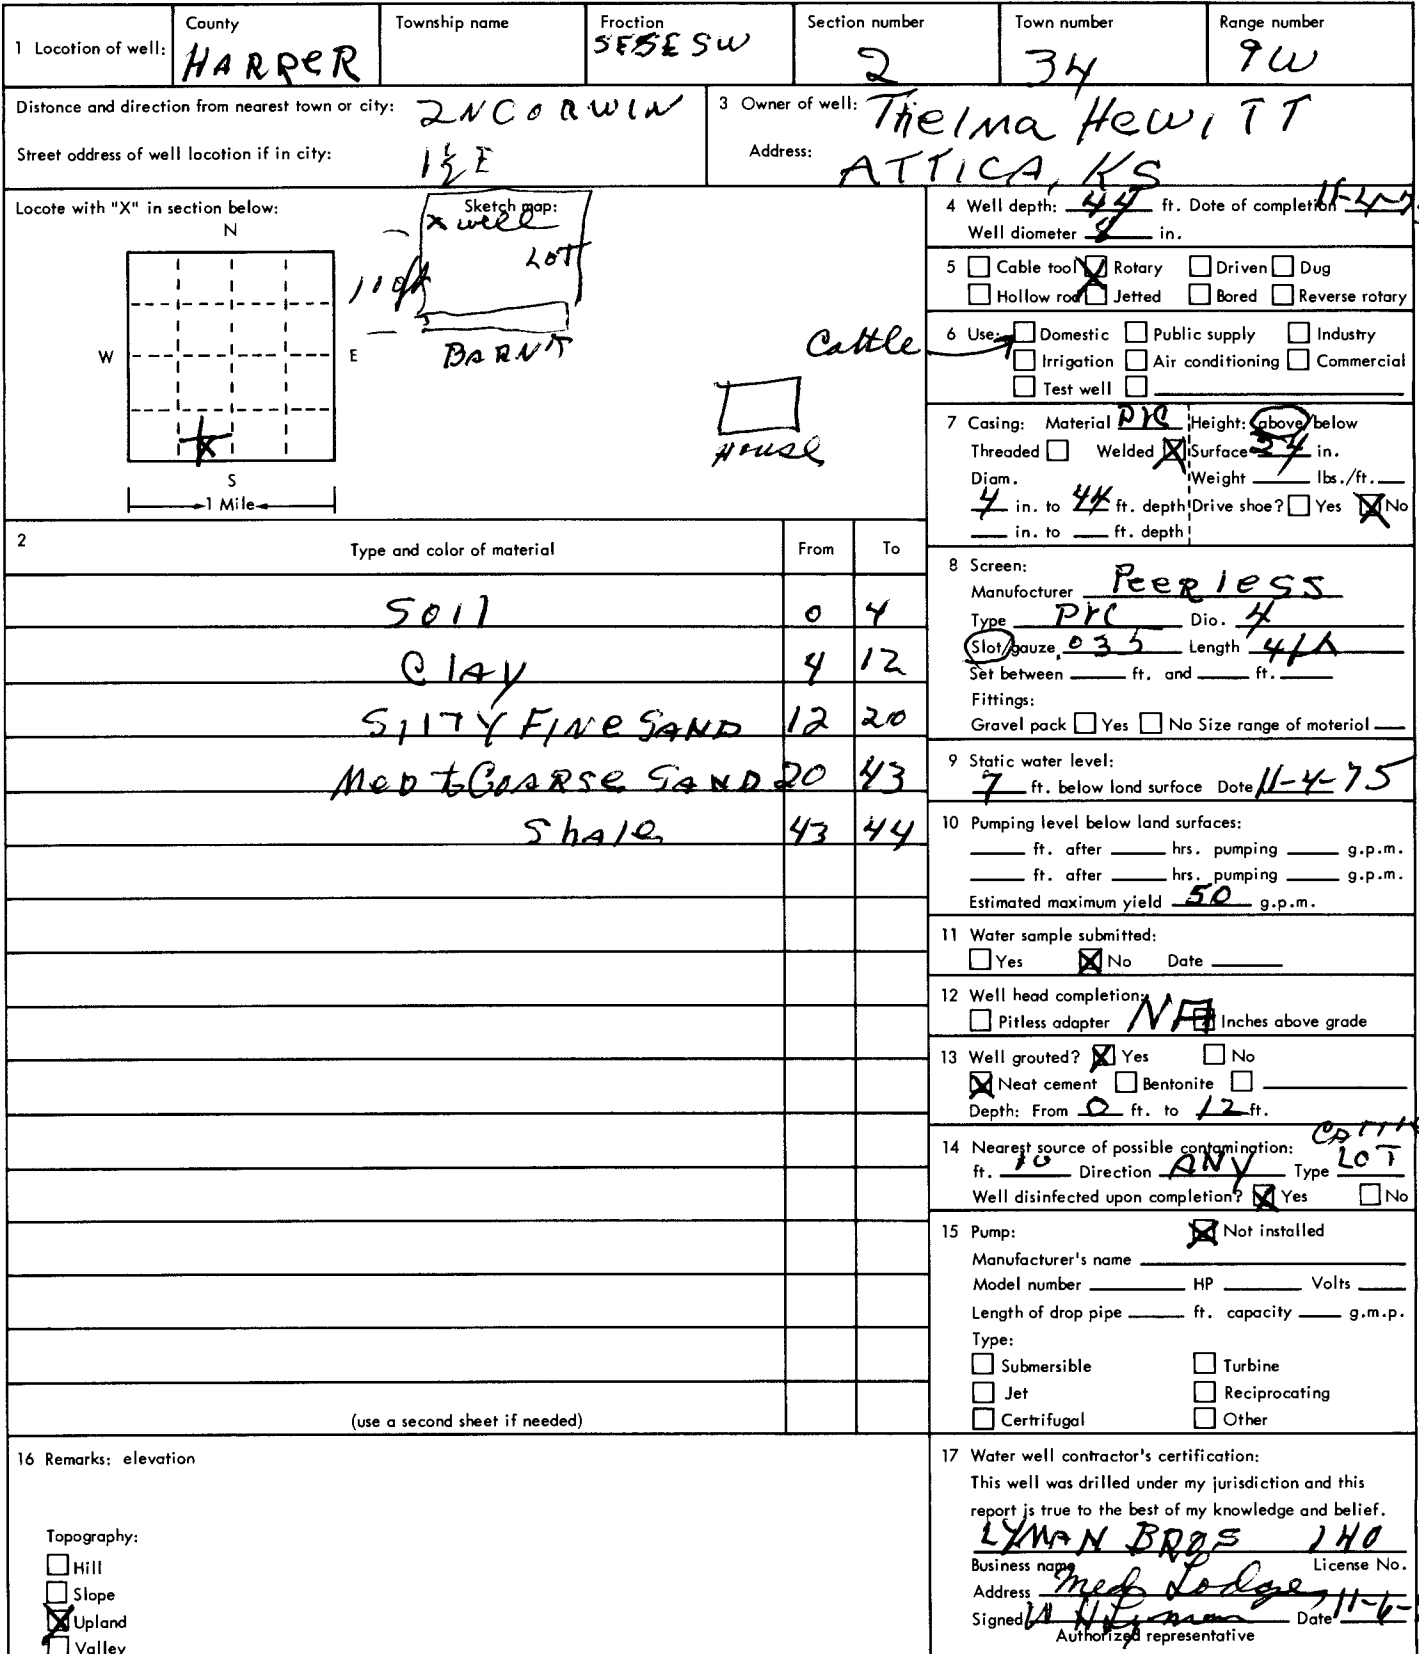 1 Location of well:
County
HARPER
Township name
Fraction
SESESW
Section number
2
Town number
34
Range number
9W
Distance and direction from nearest town or city: 2N CORWIN
Street address of well location if in city: 1½ E
3 Owner of well: Thelma HewiTT
Address: ATTICA, KS
Locate with "X" in section below:
N
W
E
S
1 Mile
X
Sketch map:
x well
LOT
110ft
BARN
Cattle
House
4 Well depth: 44 ft. Date of completion 11-4-7
Well diameter 8 in.
5 Cable tool Rotary Driven Dug
Hollow rod Jetted Bored Reverse rotary
6 Use: Domestic Public supply Industry
Irrigation Air conditioning Commercial
Test well
7 Casing: Material PVC Height: above/below
Threaded Welded X Surface 24 in.
Diam. Weight lbs./ft.
4 in. to 44 ft. depth Drive shoe? Yes X No
in. to ft. depth
2
Type and color of material From To
Soil 0 4
Clay 4 12
SilTY Fine SAND 12 20
Med to Coarse SAND 20 43
Shale 43 44
(use a second sheet if needed)
8 Screen:
Manufacturer Peerless
Type PVC Dia. 4
Slot/gauze .035 Length 4ft
Set between ft. and ft.
Fittings:
Gravel pack Yes No Size range of material
9 Static water level:
7 ft. below land surface Date 11-4-75
10 Pumping level below land surfaces:
ft. after hrs. pumping g.p.m.
ft. after hrs. pumping g.p.m.
Estimated maximum yield 50 g.p.m.
11 Water sample submitted:
Yes X No Date
12 Well head completion:
Pitless adapter NA Inches above grade
13 Well grouted? X Yes No
X Neat cement Bentonite
Depth: From 0 ft. to 12 ft.
14 Nearest source of possible contamination:
ft. 10 Direction ANY Type LOT
Well disinfected upon completion? X Yes No
15 Pump: X Not installed
Manufacturer's name
Model number HP Volts
Length of drop pipe ft. capacity g.m.p.
Type:
Submersible Turbine
Jet Reciprocating
Certrifugal Other
16 Remarks: elevation
Topography:
Hill
Slope
X Upland
Valley
17 Water well contractor's certification:
This well was drilled under my jurisdiction and this
report is true to the best of my knowledge and belief.
LYMAN BROS 140
Business name License No.
Address Med Lodge,
Signed W H Lyman Date 11-6-
Authorized representative